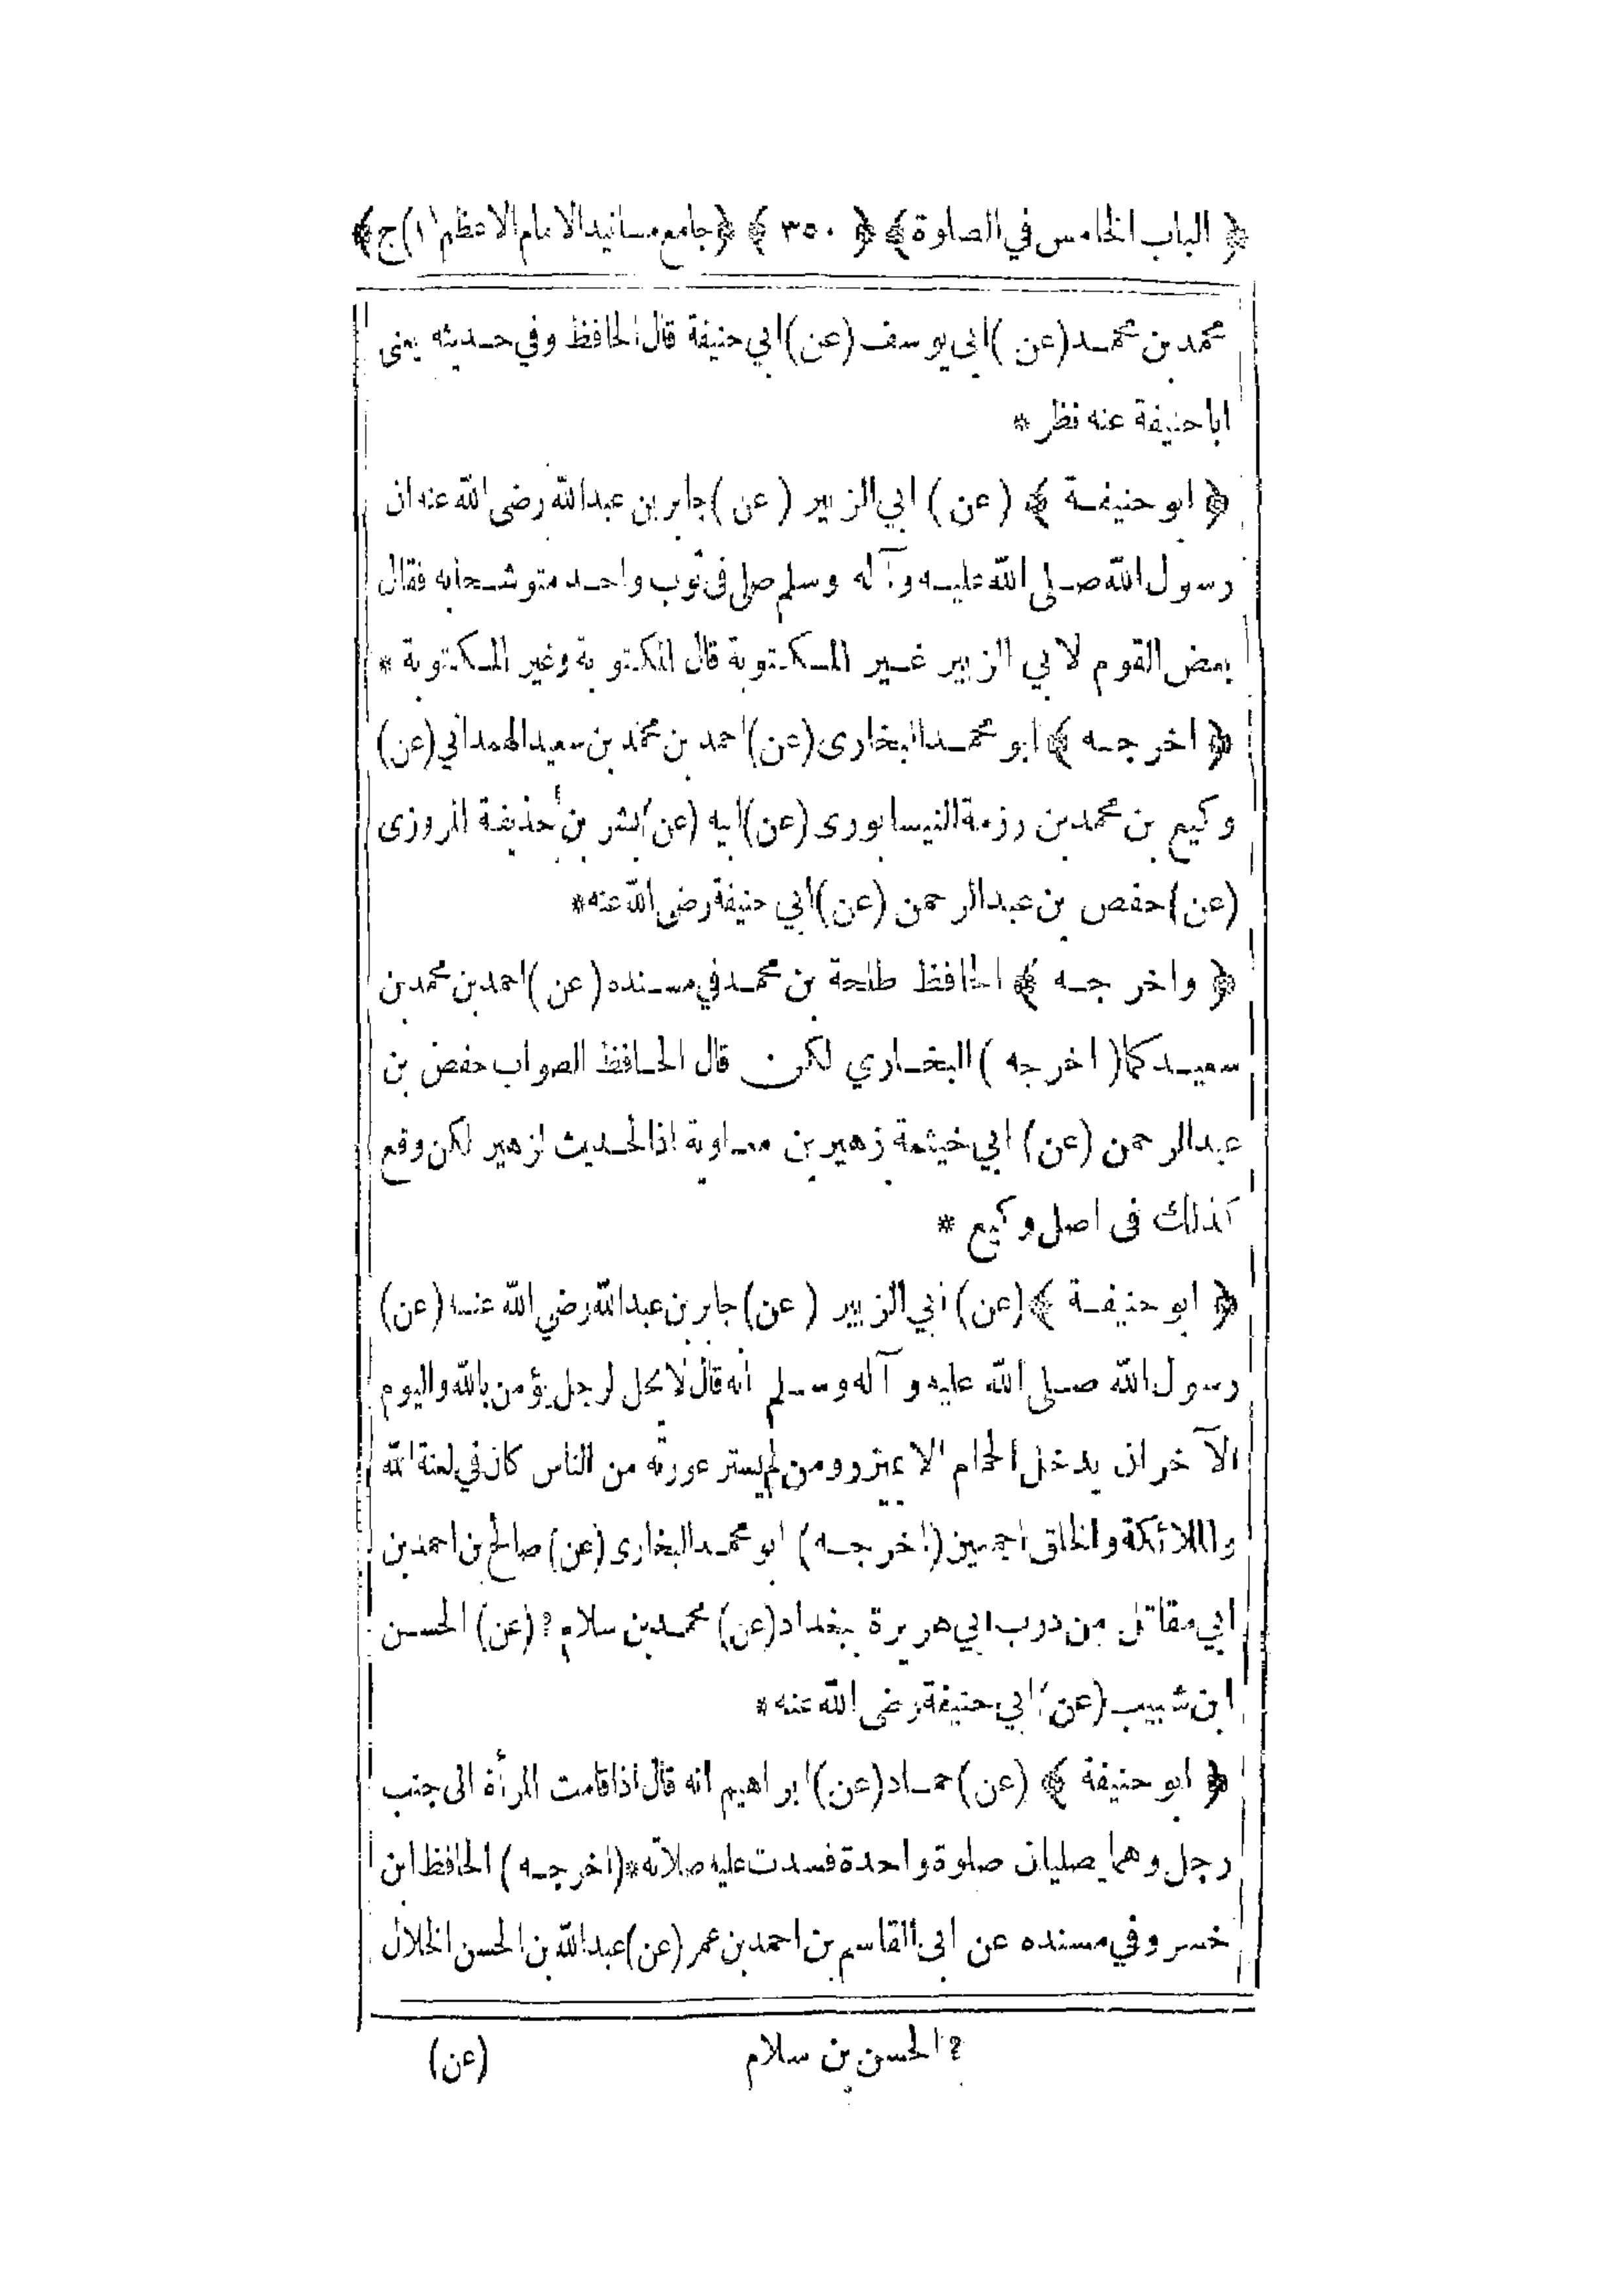 ﴿ الباب الخامس في الصلوة ﴾ ﴿ ٣٥٠ ﴾ ﴿ جامع مسانيد الامام الاعظم (١) ج ﴾
محمد بن محمد (عن) ابى يوسف (عن) ابي حنيفة قال الحافظ وفي حديثه يعنى
ابا حنيفة عنه نظر *
﴿ ابو حنيفة ﴾ (عن) ابي الزبير (عن) جابر بن عبدالله رضى الله عنه ان
رسول الله صلى الله عليه وآله وسلم صلى فى ثوب واحد متوشحا به فقال
بعض القوم لابي الزبير غير المكتوبة قال المكتوبة وغير المكتوبة *
﴿ اخرجه ﴾ ابو محمد البخارى (عن) احمد بن محمد بن سعيد الهمداني (عن)
وكيع بن محمد بن رزمة النيسابورى (عن) ابيه (عن) بشر بن حذيفة المروزى
(عن) حفص بن عبدالرحمن (عن) ابي حنيفة رضى الله عنه *
﴿ واخرجه ﴾ الحافظ طلحة بن محمد في مسنده (عن) احمد بن محمد بن
سعيد كما (اخرجه) البخاري لكن قال الحافظ الصواب حفص بن
عبدالرحمن (عن) ابي خيثمة زهير بن معاوية اذ الحديث لزهير لكن وقع
كذلك فى اصل وكيع *
﴿ ابو حنيفة ﴾ (عن) ابي الزبير (عن) جابر بن عبدالله رضي الله عنه (عن)
رسول الله صلى الله عليه وآله وسلم انه قال لا يحل لرجل يؤمن بالله واليوم
الآخر ان يدخل الحمام الا بمئزر ومن لم يستر عورته من الناس كان في لعنة الله
والملائكة والخلق اجمعين (اخرجه) ابو محمد البخارى (عن) صالح بن احمد بن
ابي مقاتل من درب ابي هريرة ببغداد (عن) محمد بن سلام ? (عن) الحسن
ابن شبيب (عن) ابي حنيفة رضى الله عنه *
﴿ ابو حنيفة ﴾ (عن) حماد (عن) ابراهيم انه قال اذا قامت المرأة الى جنب
رجل وهما يصليان صلوة واحدة فسدت عليه صلاته * (اخرجه) الحافظ ابن
خسرو في مسنده عن ابى القاسم بن احمد بن عمر (عن) عبدالله بن الحسن الخلال
? الحسن بن سلام (عن)